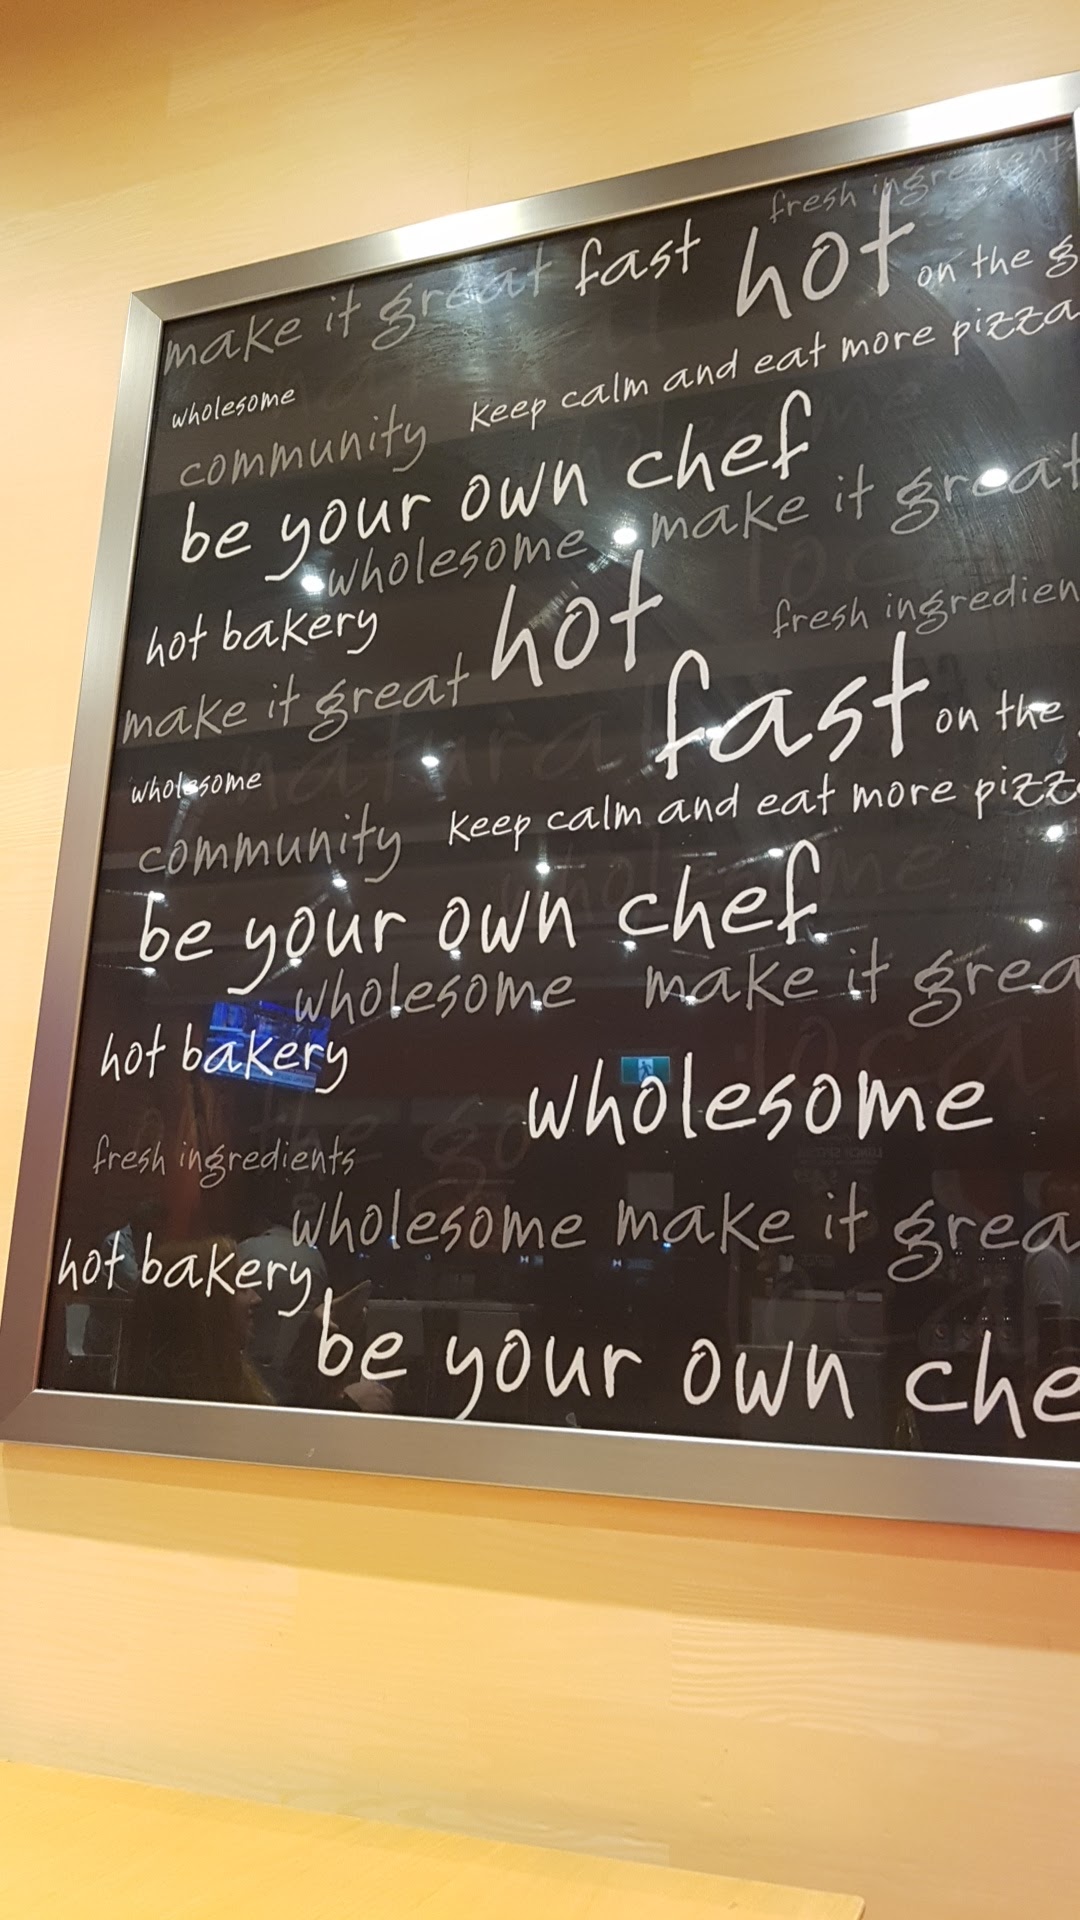 fresh ingredients
make it great fast hot on the g
wholesome
keep calm and eat more pizza
community
be your own chef
wholesome make it great
hot bakery hot fresh ingredien
make it great
natural
fast on the
wholesome
community keep calm and eat more pizz
wholesome
be your own chef
wholesome make it grea
hot bakery
loca
wholesome
on the go
fresh ingredients
wholesome make it grea
hot bakery
be your own che